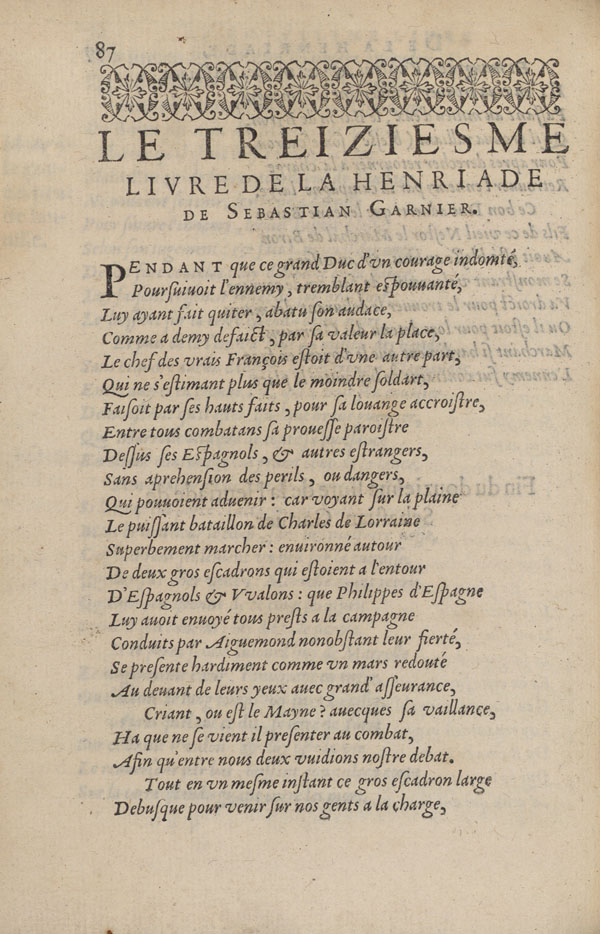 87
LE TREIZIESME
LIVRE DE LA HENRIADE
DE SEBASTIAN GARNIER.
PENDANT que ce grand Duc d'vn courage indomté,
Pourſuiuoit l'ennemy, tremblant eſpouuanté,
Luy ayant fait quiter, abatu ſon audace,
Comme a demy defaict, par ſa valeur la place,
Le chef des vrais François eſtoit d'vne autre part,
Qui ne s'eſtimant plus que le moindre ſoldart,
Faiſoit par ſes hauts faits, pour ſa louange accroiſtre,
Entre tous combatans ſa proueſſe paroiſtre
Deſſus ſes Eſpagnols, & autres eſtrangers,
Sans aprehenſion des perils, ou dangers,
Qui pouuoient aduenir: car voyant ſur la plaine
Le puiſſant bataillon de Charles de Lorraine
Superbement marcher: enuironné autour
De deux gros eſcadrons qui eſtoient a l'entour
D'Eſpagnols & Vvalons: que Philippes d'Eſpagne
Luy auoit enuoyé tous preſts a la campagne
Conduits par Aiguemond nonobſtant leur fierté,
Se preſente hardiment comme vn mars redouté
Au deuant de leurs yeux auec grand' aſſeurance,
Criant, ou eſt le Mayne? auecques ſa vaillance,
Ha que ne ſe vient il preſenter au combat,
Afin qu'entre nous deux vuidions noſtre debat.
Tout en vn meſme inſtant ce gros eſcadron large
Debuſque pour venir ſur nos gents a la charge,